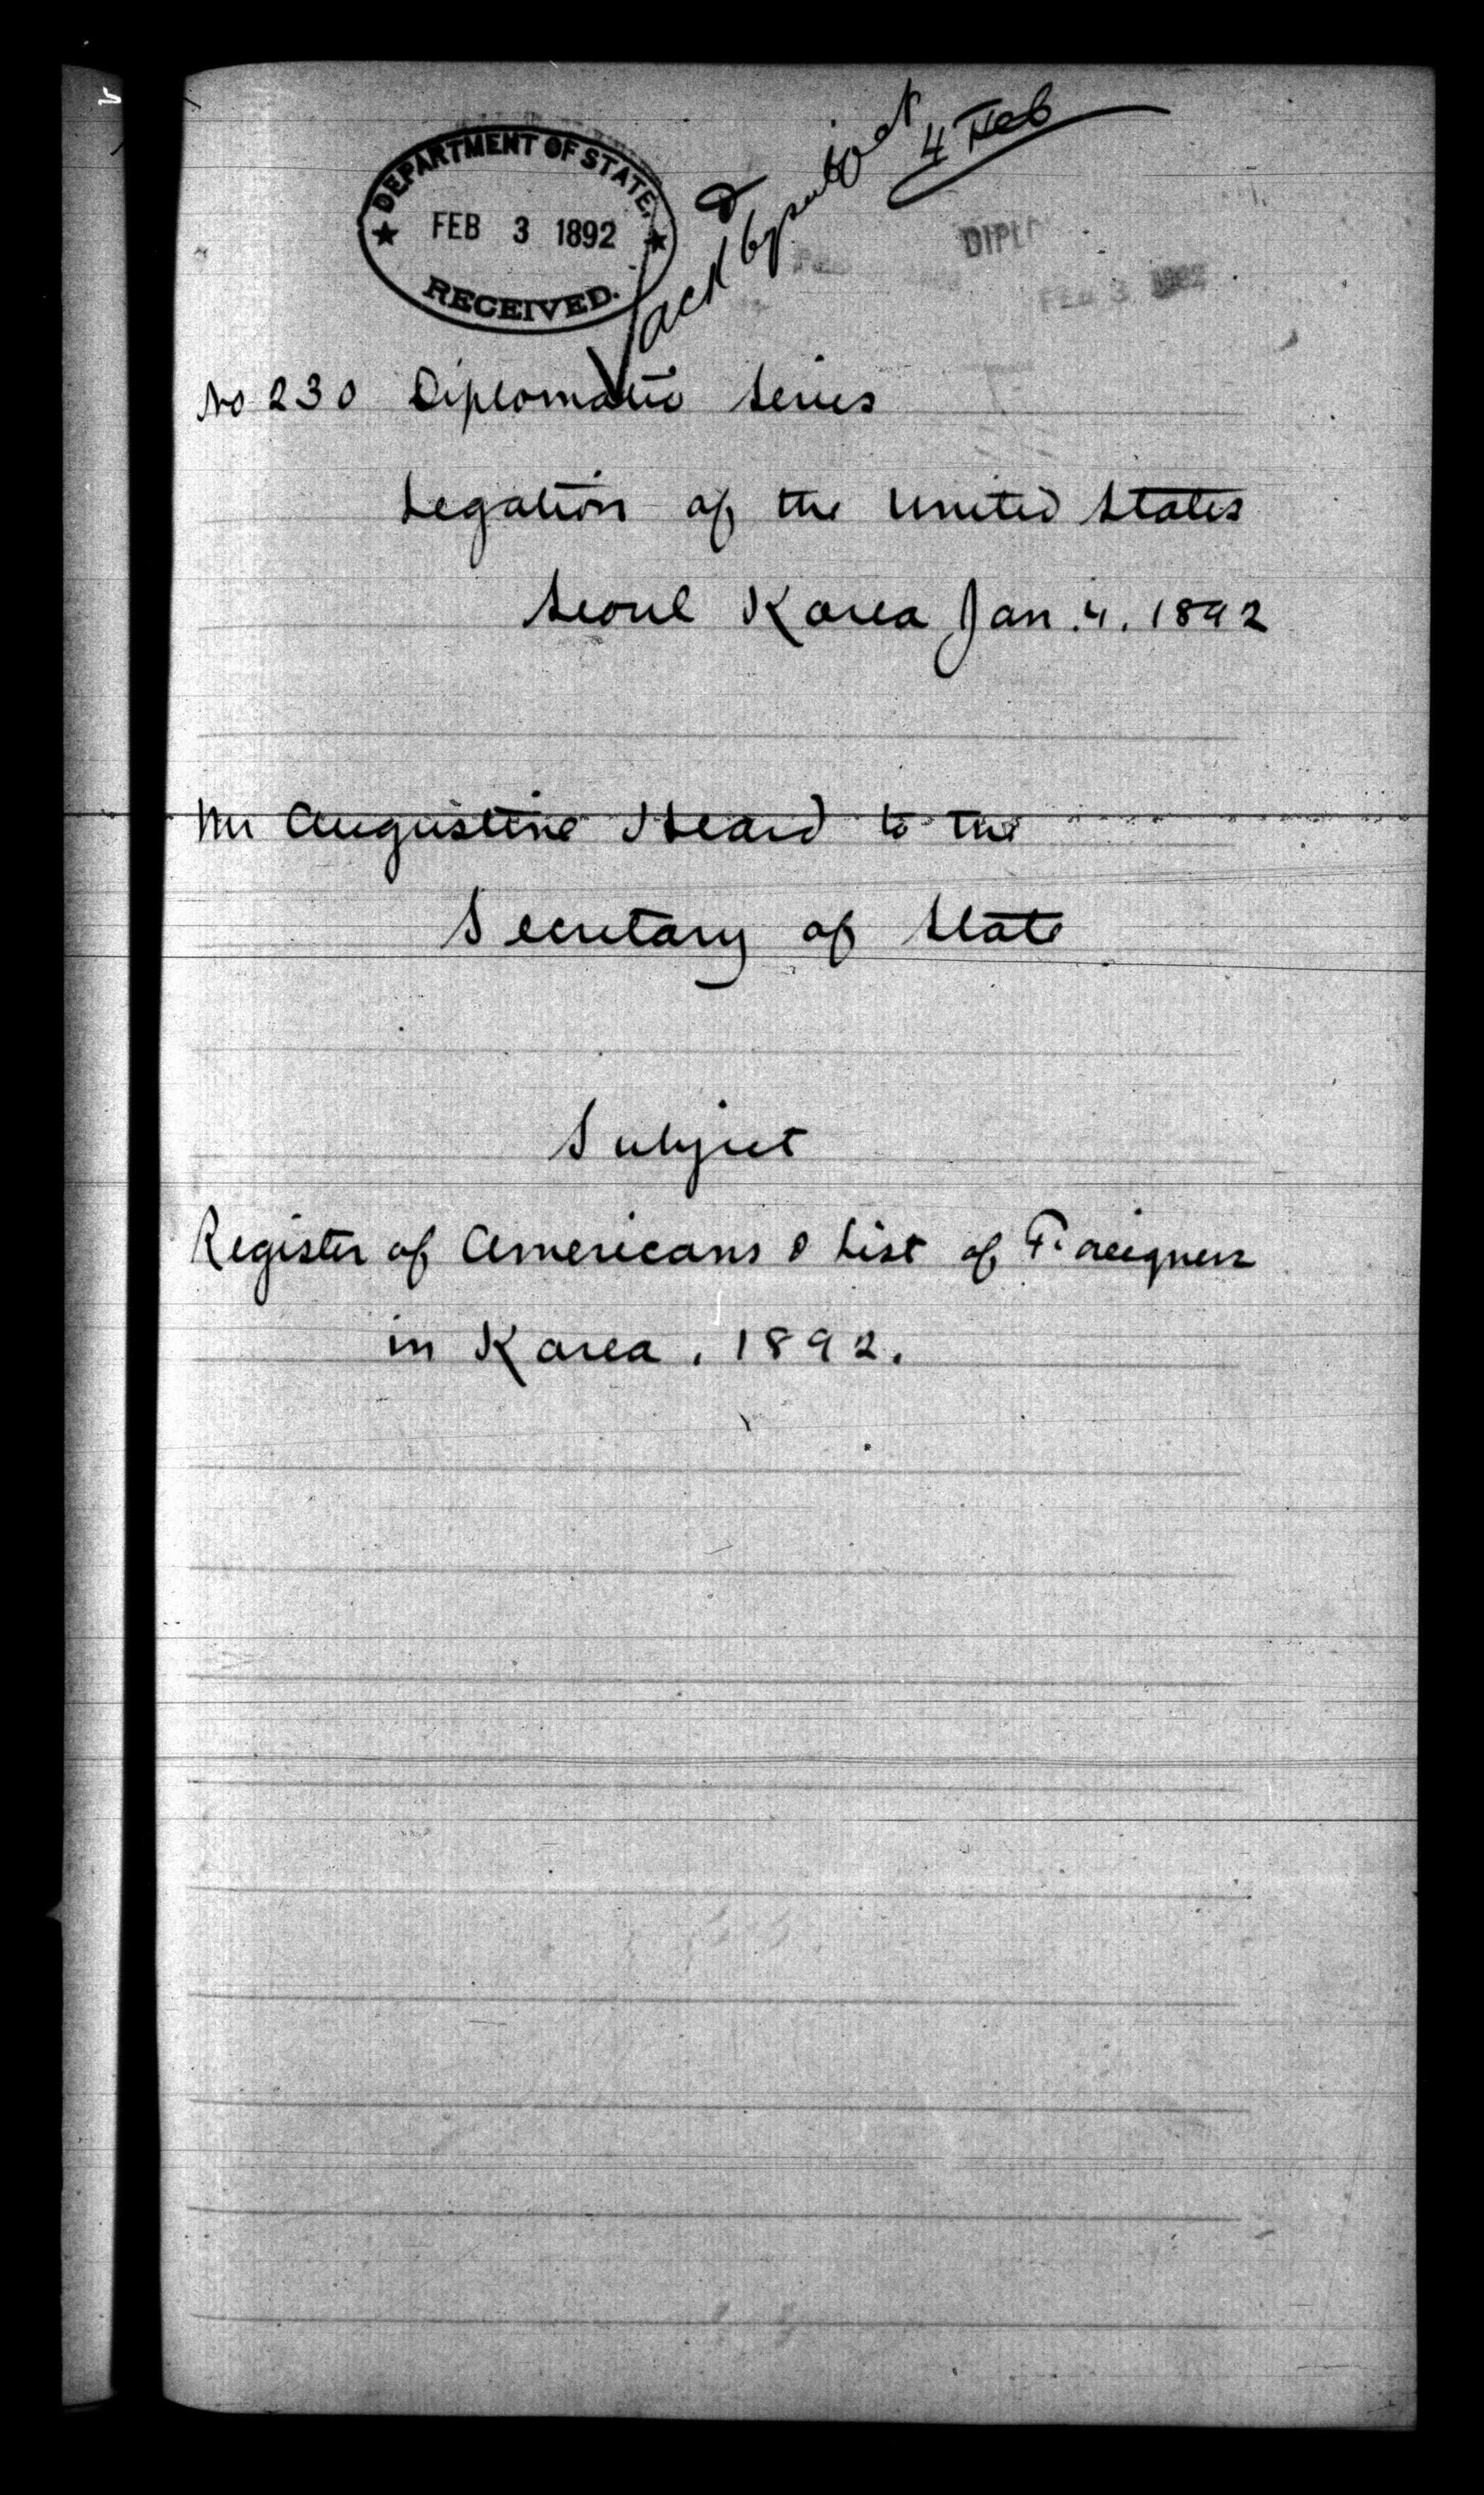 DEPARTMENT OF STATE.
FEB 3 1892
RECEIVED.
ackd by subject
4 Feb
DIPL
FEB 3 1892
No 230 Diplomatic Series
Legation of the United States
Seoul Korea Jan. 4. 1892
Mr Augustine Heard to the
Secretary of State
Subject
Register of Americans & List of Foreigners
in Korea. 1892.